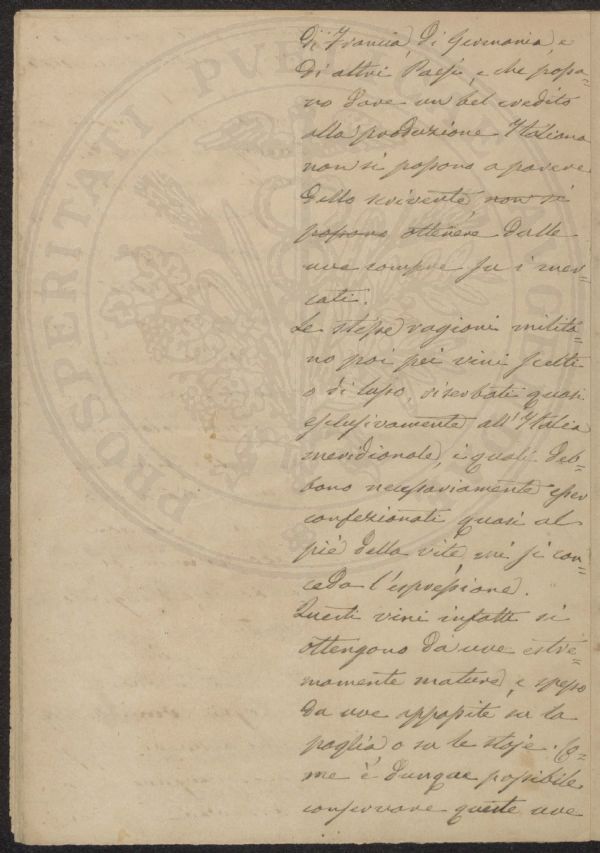 di Francia, di Germania, e
di altri Paesi, e che possa=
no dare un bel credito
alla produzione Italiana
non si possono a parere
dello scrivente non si
possono ottenere dalle
uve compre su i mer=
cati.
Le stesse ragioni milita=
no poi pei vini scelti
o di lusso, riserbati quasi
esclusivamente all'Italia
meridionale, i quali deb=
bono necessariamente esser
confezionati quasi al
piè della vite, mi si con=
ceda l'espressione.
Questi vini infatti si
ottengono da uve estre=
mamente mature, e spesso
da uve appassite su la
paglia o su le stoje. Co=
me è dunque possibile
conservare queste uve
PROSPERITATI PUBLICAE